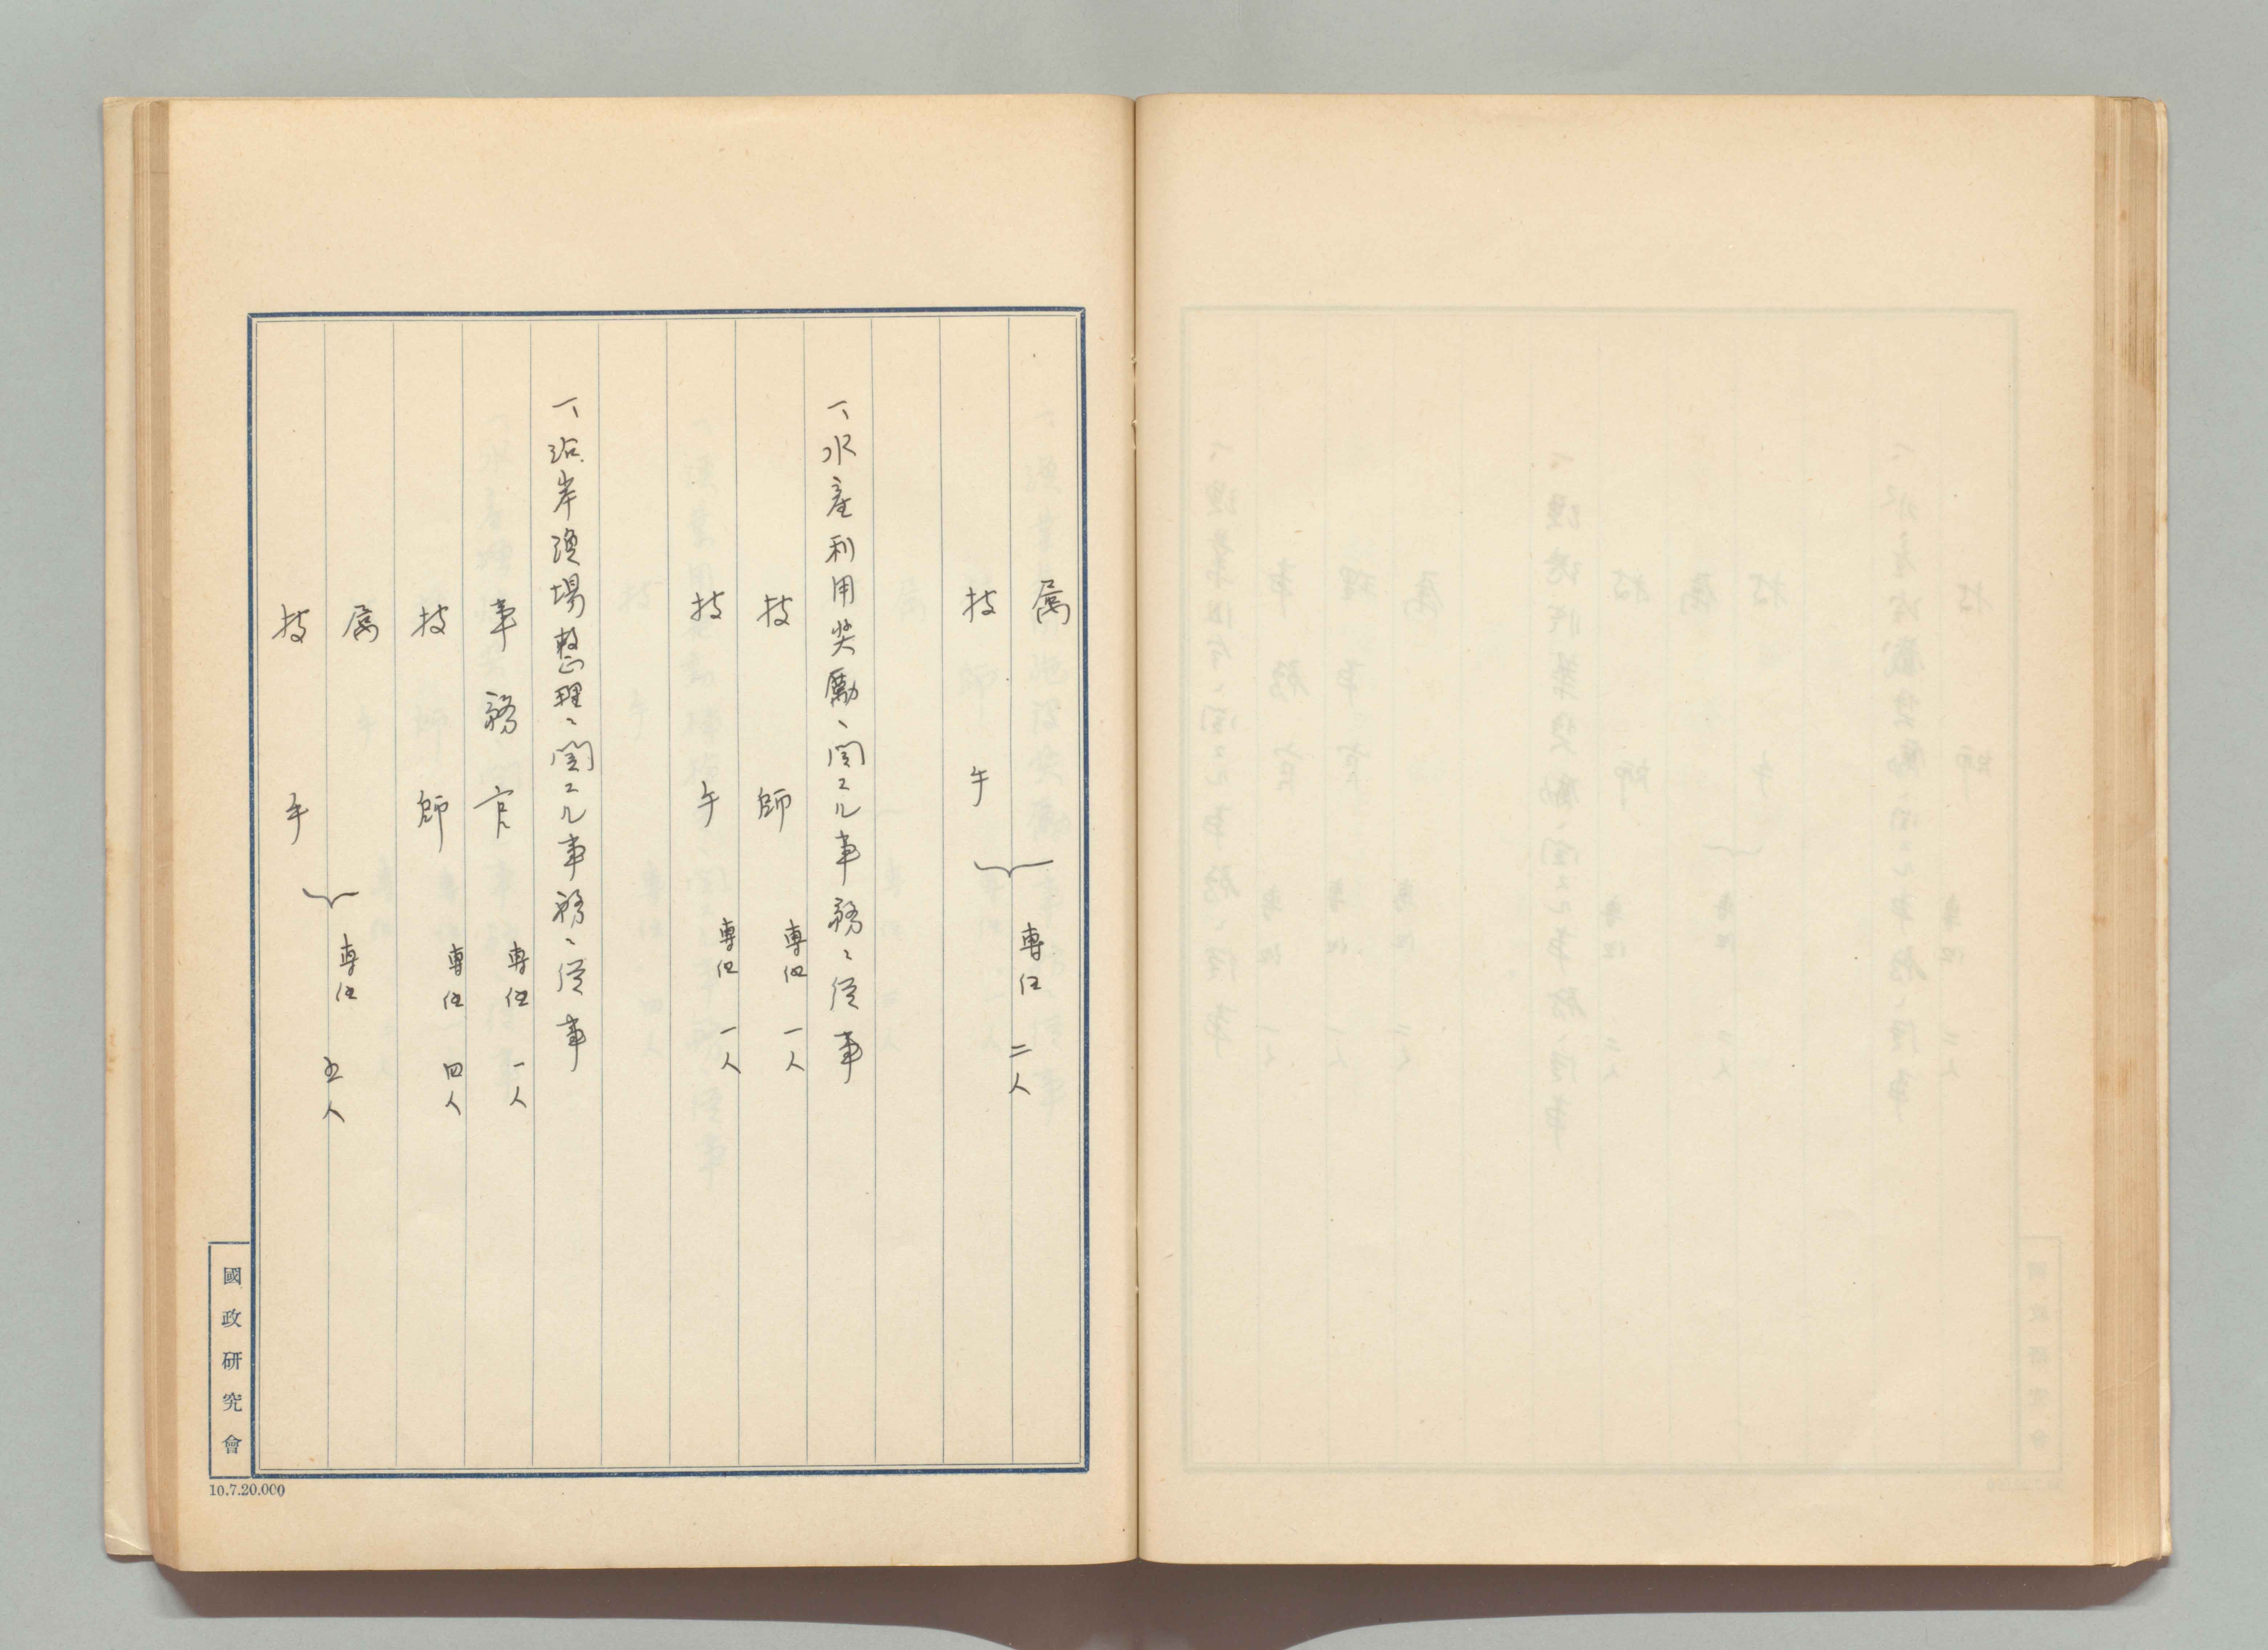 属
技手 専任 二人
一、水産利用奨励ニ関スル事務ニ従事
技師 専任 一人
技手 専任 一人
一、沿岸漁場整理ニ関スル事務ニ従事
事務官 専任 一人
技師 専任 四人
属
技手 専任 五人
國政研究會
10.7.20.000